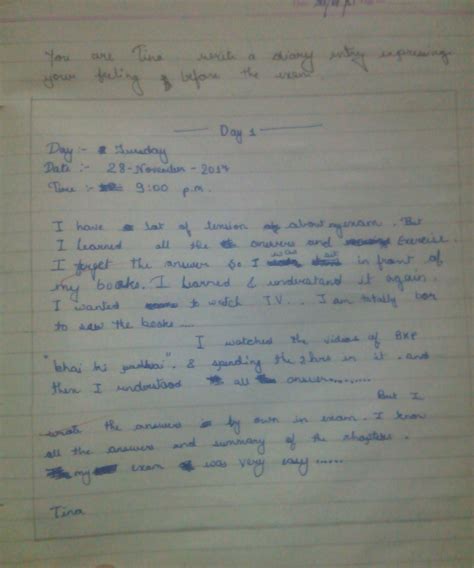 You are Tina write a diary entry expressing
your feeling before the exam
Day 1
Day :- Tuesday
Date :- 28-November-2017
Time :- 9:00 p.m.
I have a lot of tension about my exam. But
I learned all the answers and Exercise.
I forget the answer So I was sat in front of
my books. I learned & understand it again.
I wanted to watch T.V.. I am totally bor
to saw the books .....
I watched the videos of BKP
"bhai ki padhai". & spending the 2hrs in it. and
then I understood all answer..........
But I
wrote the answers by own in exam. I know
all the answers and summary of the chapters.
my exam was very easy ......
Tina